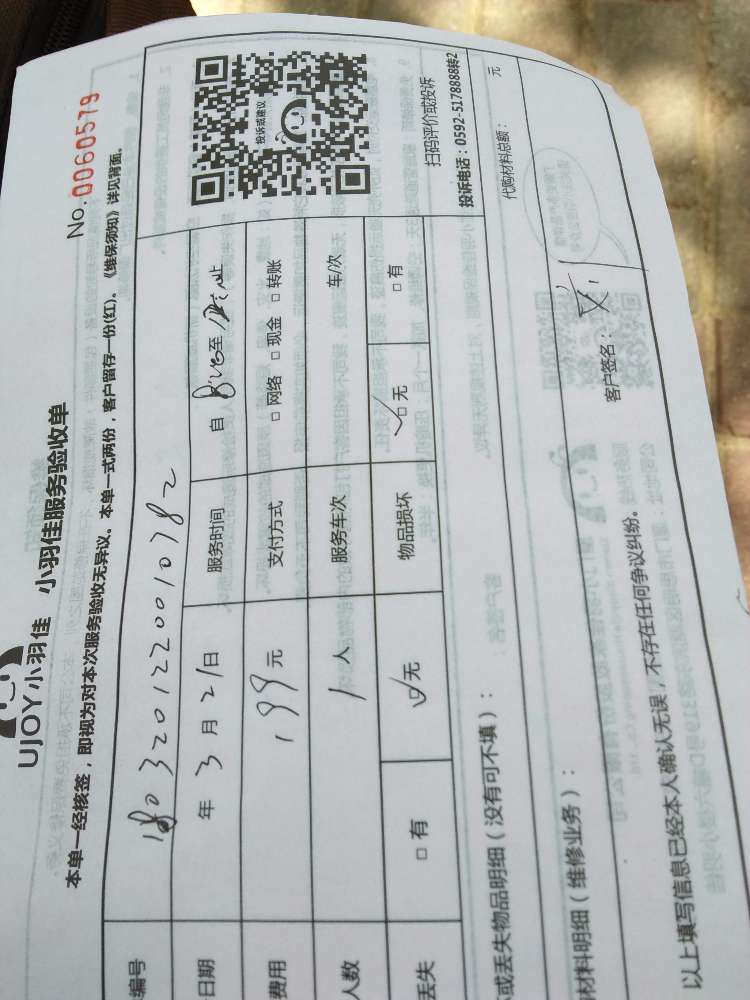 UJOY小羽佳 小羽佳服务验收单
No.0060579
本单一经核签，即视为对本次服务验收无异议。本单一式两份，客户留存一份(红)。《维保须知》详见背面。
编号 1803201220010782
投诉或建议
日期 年 3 月 21 日 服务时间 自 至 止
费用 199 元 支付方式 □ 网络 □ 现金 □ 转账
人数 1 人 服务车次 车/次
丢失 □ 有 □ 无 物品损坏 □ 无 □ 有
扫码评价或投诉
投诉电话：0592-5178888转2
或丢失物品明细（没有可不填）：
材料明细（维修业务）：
代购材料总额： 元
以上填写信息已经本人确认无误，不存在任何争议纠纷。
客户签名：